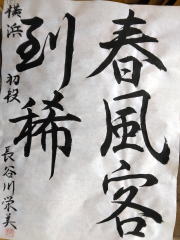 春風客
到稀
横浜 初段 長谷川栄美